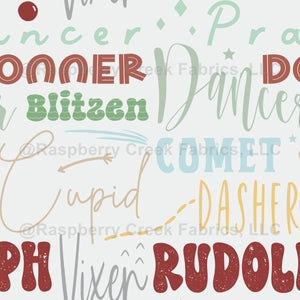 Vixen
ancer Pra
ONNER Dancer DO
r Blitzen
@Raspberry Creek Fabrics, LLC
Cupid COMET
DASHER
@Raspberry Creek Fabrics, LLC
PH Vixen RUDOL